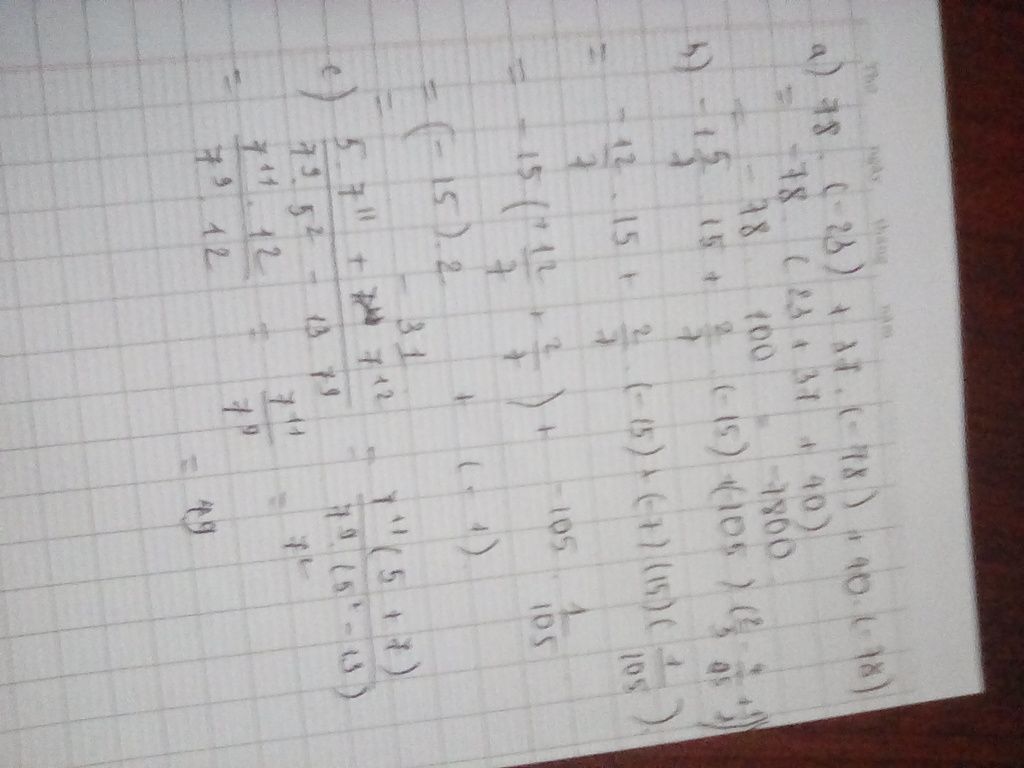 a) 78 . (-25) + 35 . (-78) + 40 . (-78)
= -78 . (25 + 35 + 40)
= -78 . 100 = -7800
b) -15/7 . 15 + 2/7 . (-15) + (-105)
= -12/7 . 15 + 2/7 . (-15) + (-7)(15)(1/105)
= -15 (12/7 + 2/7) + -105 . 1/105
= (-15) . 2 + (-1)
= -31
c) 5 . 7^11 + 7^12 / 7^9 . 5^2 - 13 . 7^9 = 7^11 (5 + 7) / 7^9 . (5^2 - 13)
= 7^11 . 12 / 7^9 . 12 = 7^11 / 7^9 = 7^2 = 49